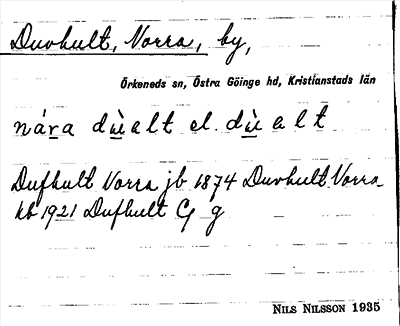 Duvhult, Norra, by,
Örkeneds sn, Östra Göinge hd, Kristianstads län
nárа dù̱alt el. dù̱alt
Dufhult Norra jb 1874 Duvhult Norra
kb 1921 Dufhult G g
NILS NILSSON 1935